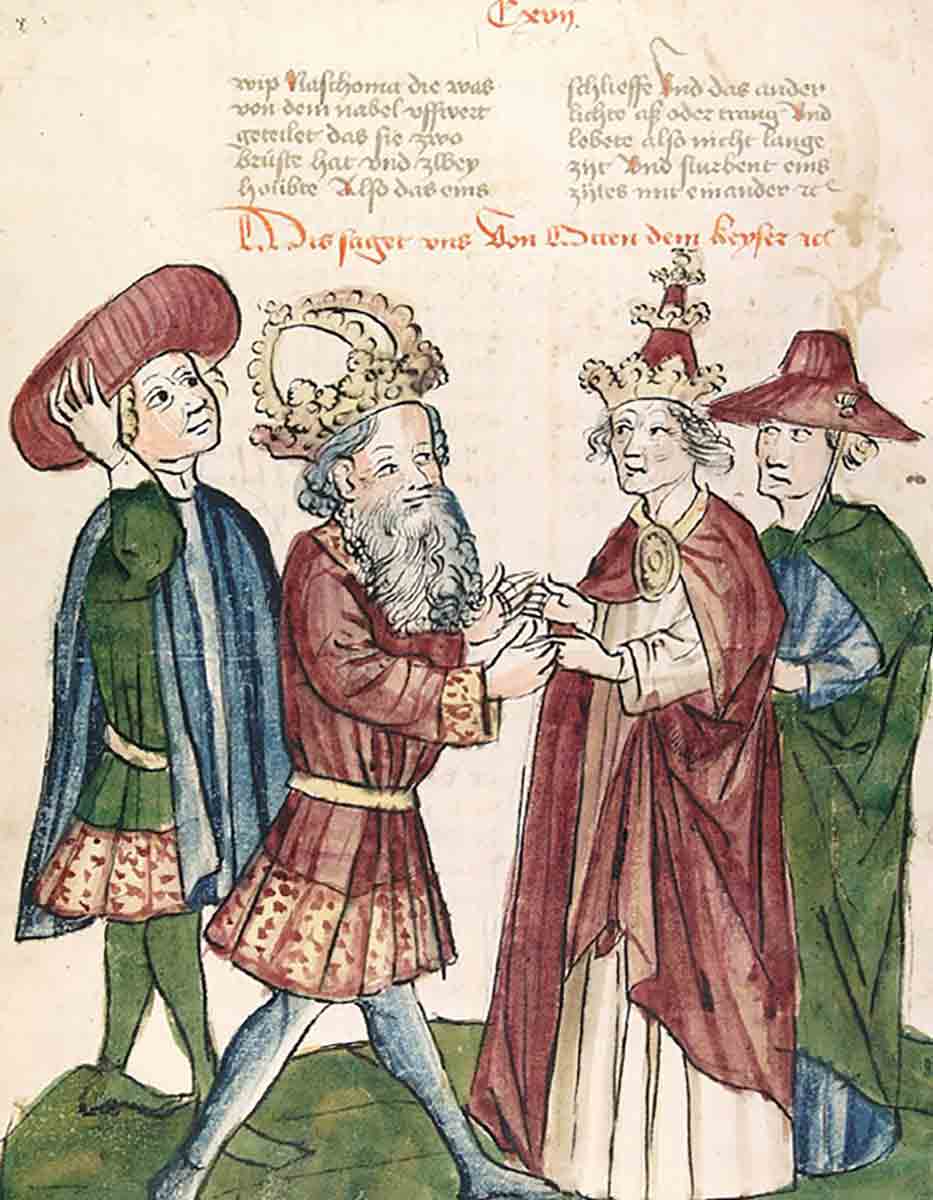 Cxvij
wip Naschoma die was
von dem nabel vffwert
geteilet das sie zwo
brüste hat vnd zwey
höubte Also das eins
schlieffe Vnd das ander
lichte aß oder trang Vnd
lebete also nicht lange
zijt Vnd sturbent eins
zijtes mit einander ꝛc
Dis saget vns Von Otten dem keyser ꝛc